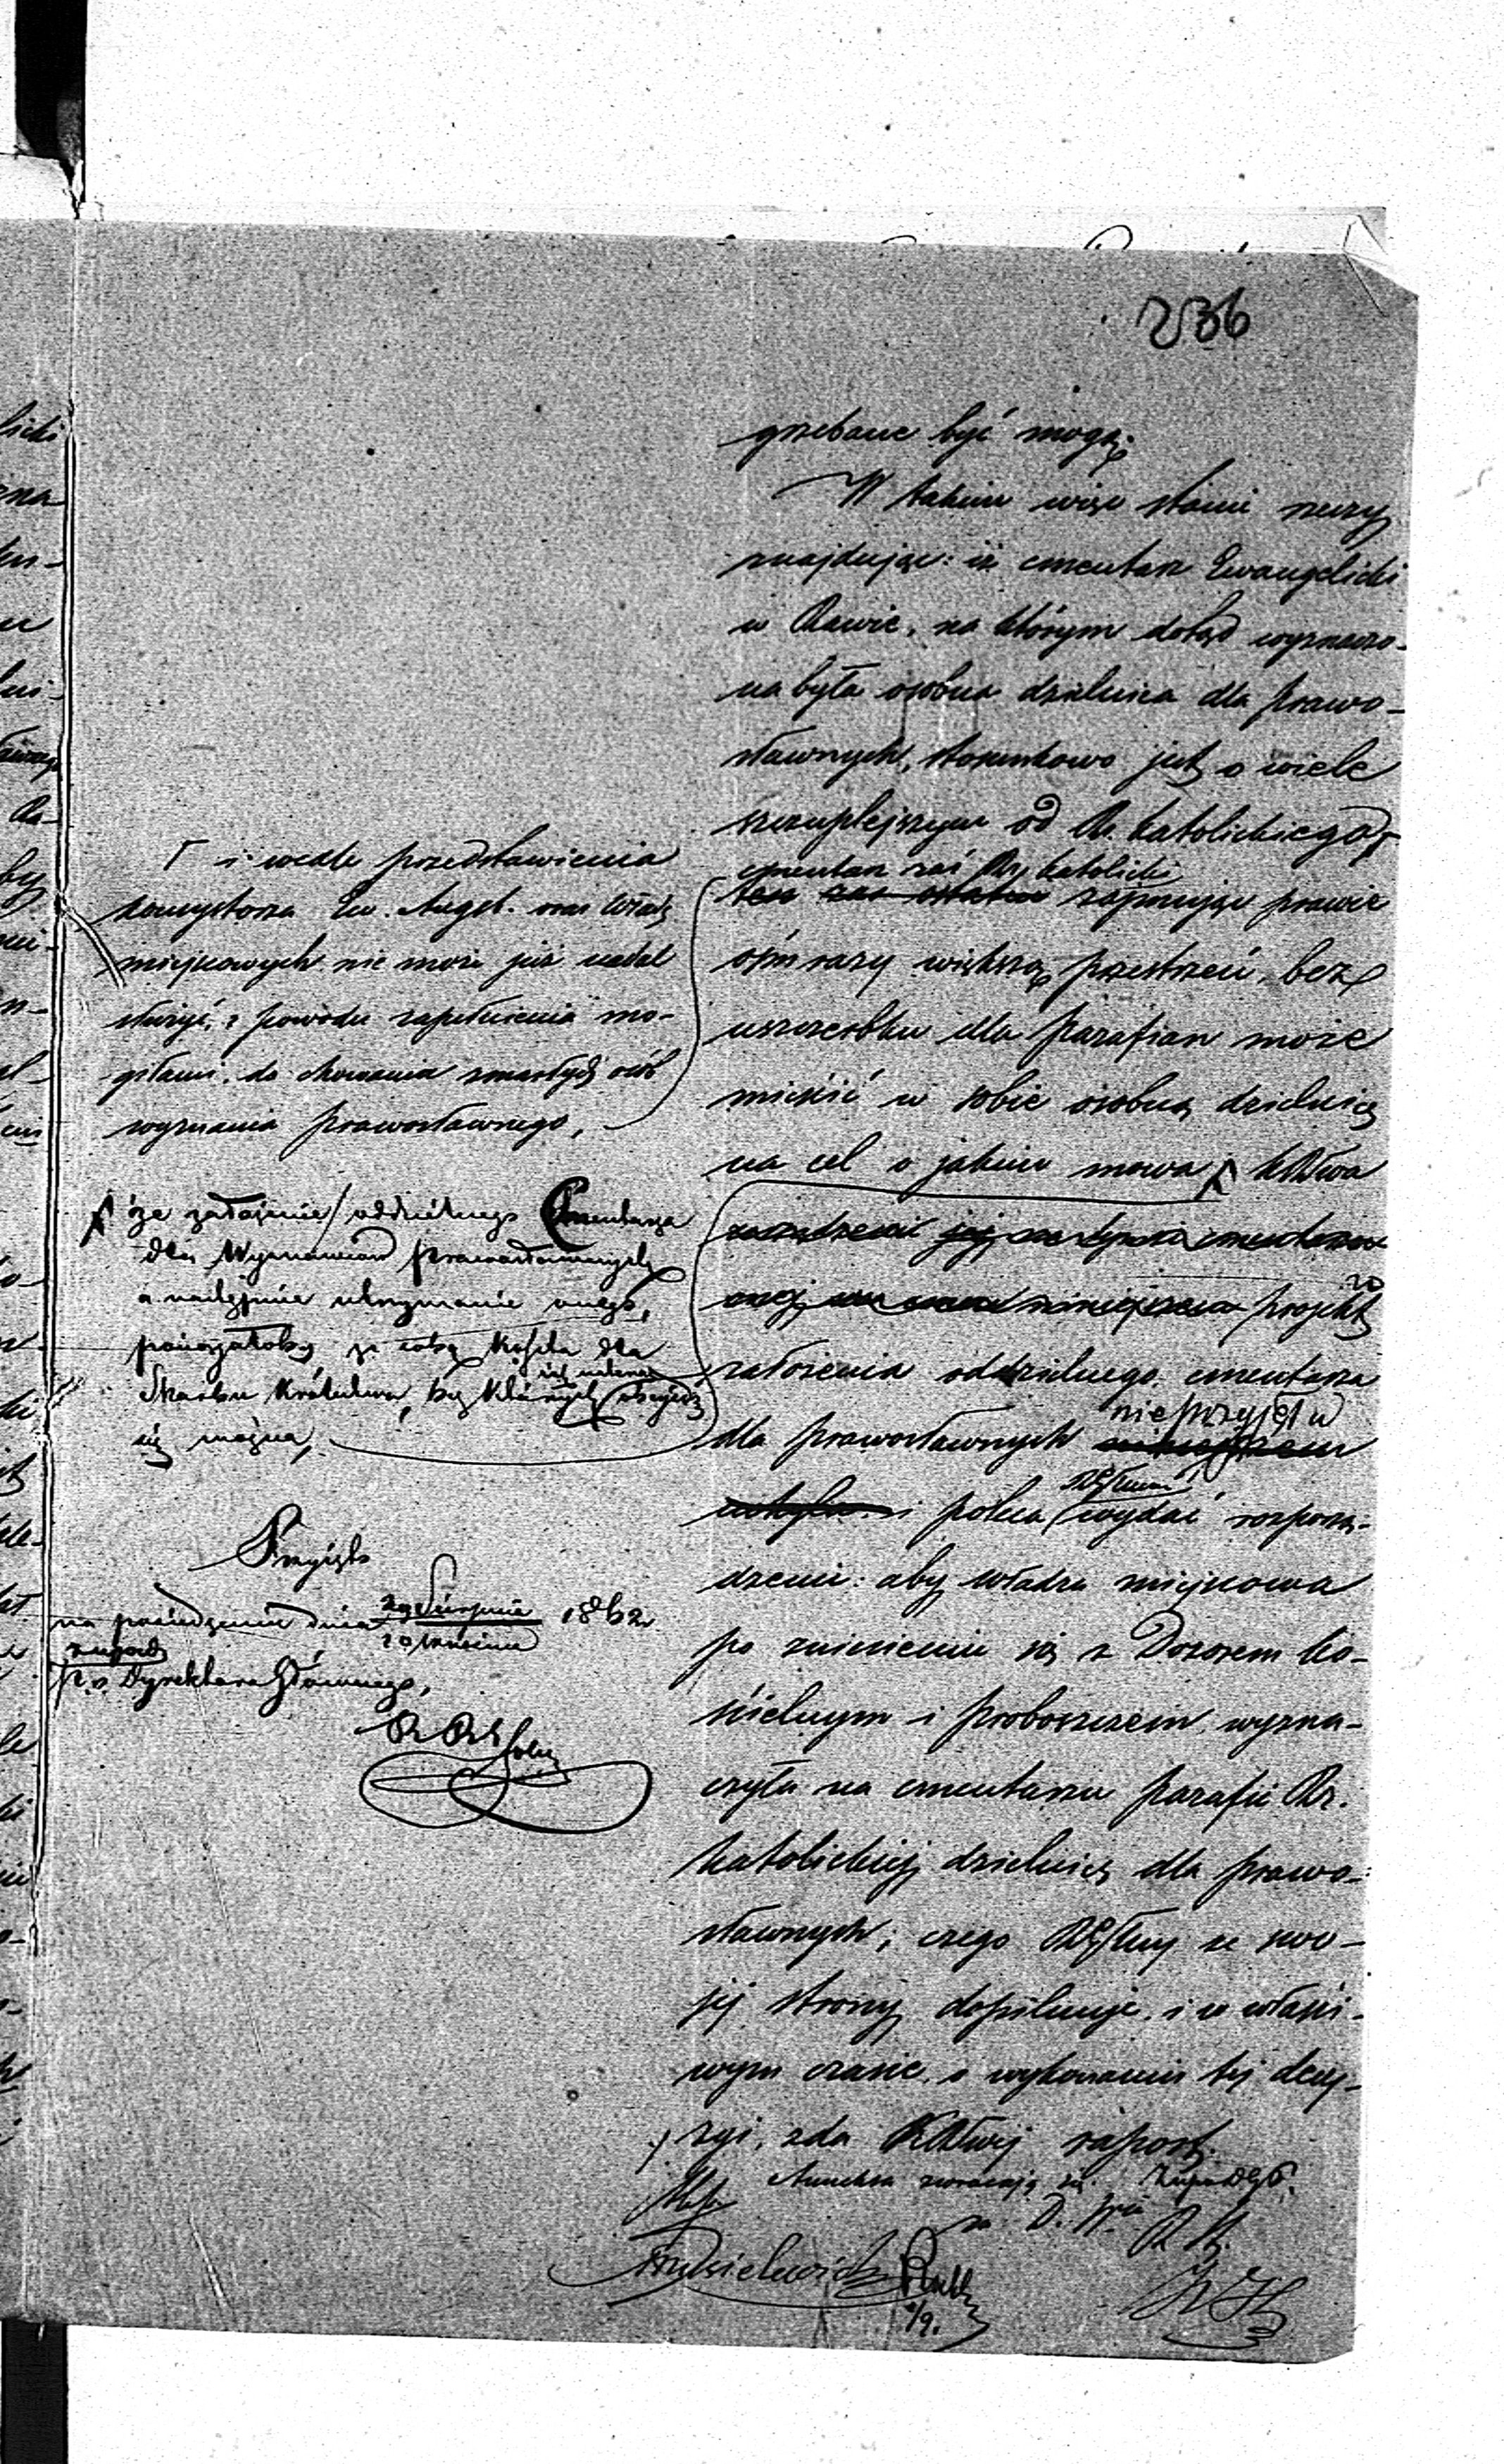 236
grzebane być mogą.
W takim więc stanie rzeczy
znajdując: iż cmentarz Ewangelicki
w Rawie, na którym dotąd wyznaczo-
na była osobna dzielnica dla prawo-
sławnych, stosunkowo jest o wiele
szczuplejszym od Rz. katolickiego,
cmentarz zaś Rz. katolicki
ten zaś ostatni zajmując prawie
ośm razy większą przestrzeń, bez
uszczerbku dla parafian może
mieścić w sobie osobną dzielnicę
na cel o jakim mowa, KRWa
projektu
założenia oddzielnego cmentarza
nie przyjęła
dla prawosławnych niniejszem
i poleca wydać rozporzą-
dzenie: aby władza miejscowa
po zniesieniu się z Dozorem Ko-
ścielnym i proboszczem, wyzna-
czyła na cmentarzu parafii Rz.
katolickiej dzielnicę dla prawo-
sławnych; czego ze swo-
jej strony dopilnuje, i w właści-
wym czasie, o wykonaniu tej decy-
zyi, zda raport.
Annexa zwracają się.
i wedle przedstawienia
konsystorza Ew. Augsb. oraz Władz
miejscowych nie może już nadal
służyć, z powodu zapełnienia mo-
giłami, do chowania zmarłych osób
wyznania prawosławnego,
że założenie oddzielnego Cmentarza
dla Wyznawców prawosławnych
a następnie utrzymanie onego,
pociągałoby za sobą koszta dla
Skarbu Królestwa, bez których obejść
się można,
Przyjęto
na posiedzeniu dnia 29 Sierpnia 1862
10 Września
p. o. Dyrektora Głównego,